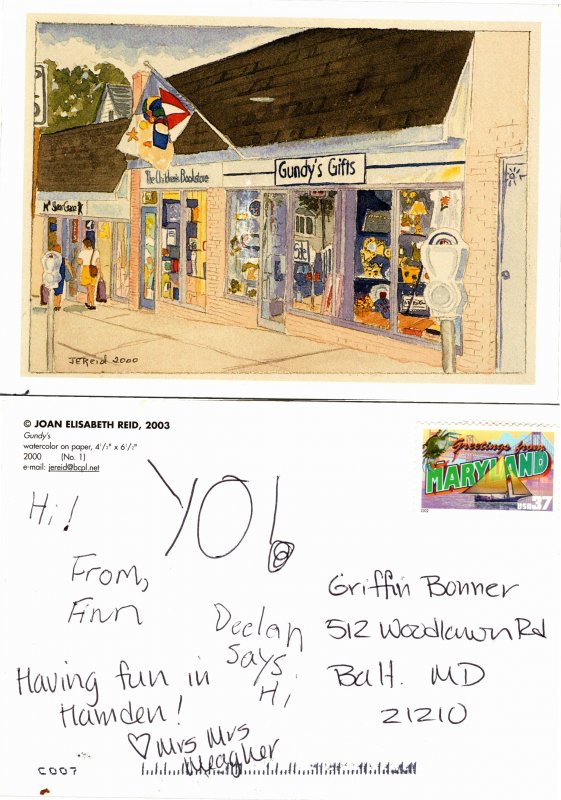 The Children's Bookstore
Gundy's Gifts
JEReid 2000
© JOAN ELISABETH REID, 2003
Gundy's
watercolor on paper, 4½" x 6½"
2000 (No. 1)
e-mail: jereid@bcpl.net
Greetings from
MARYLAND
USA 37
2002
Hi!
YO!
From,
Finn
Declan
says
Hi
Having fun in
Hamden!
♡ Mrs Mrs
Meagher
Griffin Bonner
512 Woodlawn Rd
Balt. MD
21210
C007